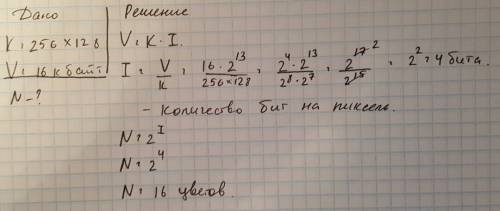 Дано
К = 256 × 128
V = 16 кбайт
N - ?
Решение
V = K · I.
I = V/K = 16 · 2^13 / 256 × 128 = 2^4 · 2^13 / 2^8 · 2^7 = 2^17 2 / 2^15 = 2^2 = 4 бита.
- количество бит на пиксель.
N = 2^I
N = 2^4
N = 16 цветов.